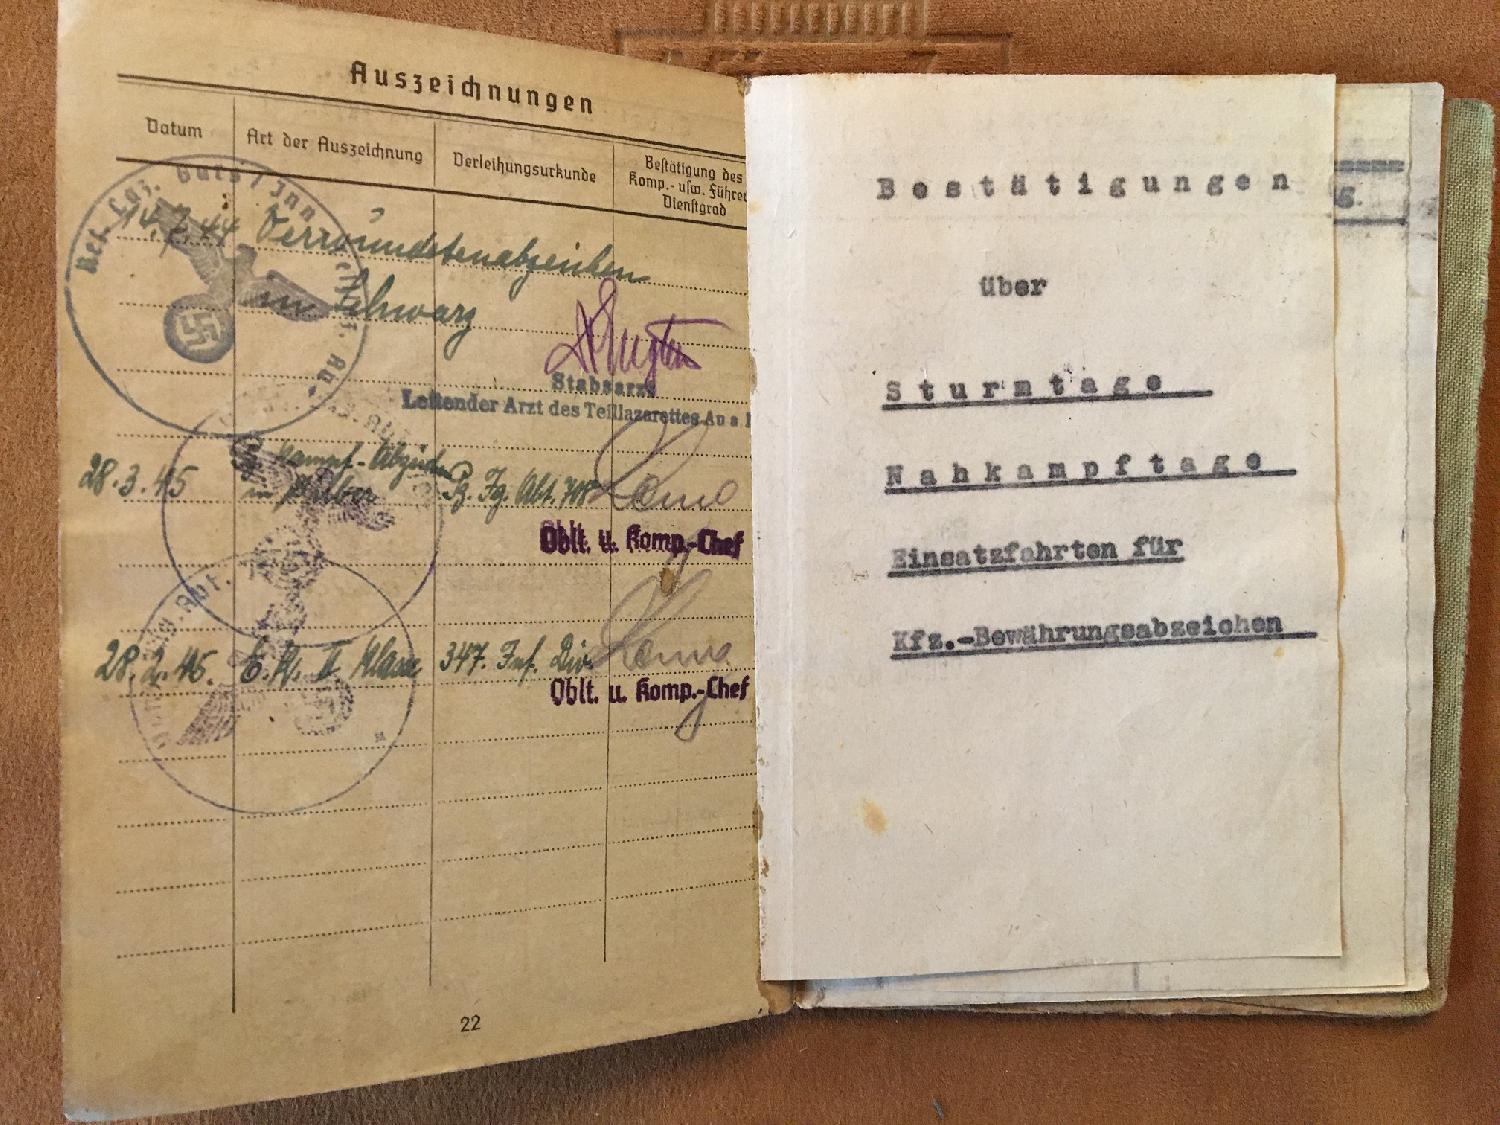 Auszeichnungen
Datum
Art der Auszeichnung
Verleihungsurkunde
Bestätigung des
Komp.- usw. Führer
Dienstgrad
Res. Laz.
14.7.44 Verwundetenabzeichen
in Schwarz
Stabsarzt
Leitender Arzt des Teillazarettes Au a
28.3.45
Kampf-Abzeichen
in Silber
Pz. Jg. Abt.
Oblt. u. Komp.-Chef
28.2.45. E.K. II Klasse 347. Inf. Div.
Oblt. u. Komp.-Chef
22
Bestätigungen
über
Sturmtage
Nahkampftage
Einsatzfahrten für
Kfz.-Bewährungsabzeichen